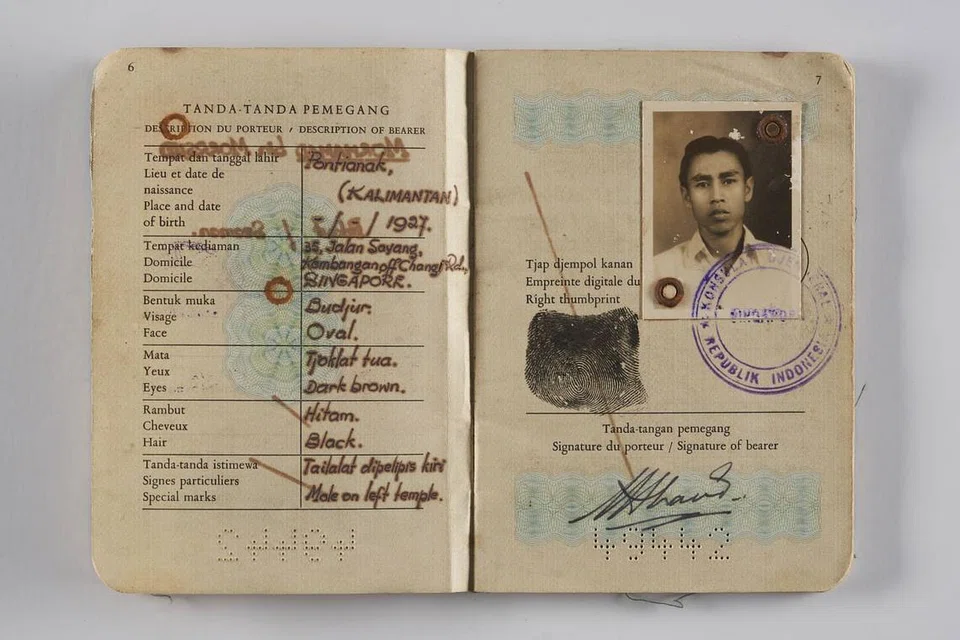 6
TANDA-TANDA PEMEGANG
DESCRIPTION DU PORTEUR / DESCRIPTION OF BEARER
Tempat dan tanggal lahir
Lieu et date de
naissance
Place and date
of birth
Pontianak,
(KALIMANTAN)
1927.
Tempat kediaman
Domicile
Domicile
35, Jalan Sayang,
Kembangan off Changi Rd.,
SINGAPORE.
Bentuk muka
Visage
Face
Budjur.
Oval.
Mata
Yeux
Eyes
Tjoklat tua.
Dark brown.
Rambut
Cheveux
Hair
Hitam.
Black.
Tanda-tanda istimewa
Signes particuliers
Special marks
Tailalat dipelipis kiri
Mole on left temple.
7
Tjap djempol kanan
Empreinte digitale du
Right thumbprint
KONSULAT DJENERAL
REPUBLIK INDONESIA
Tanda-tangan pemegang
Signature du porteur / Signature of bearer
49442